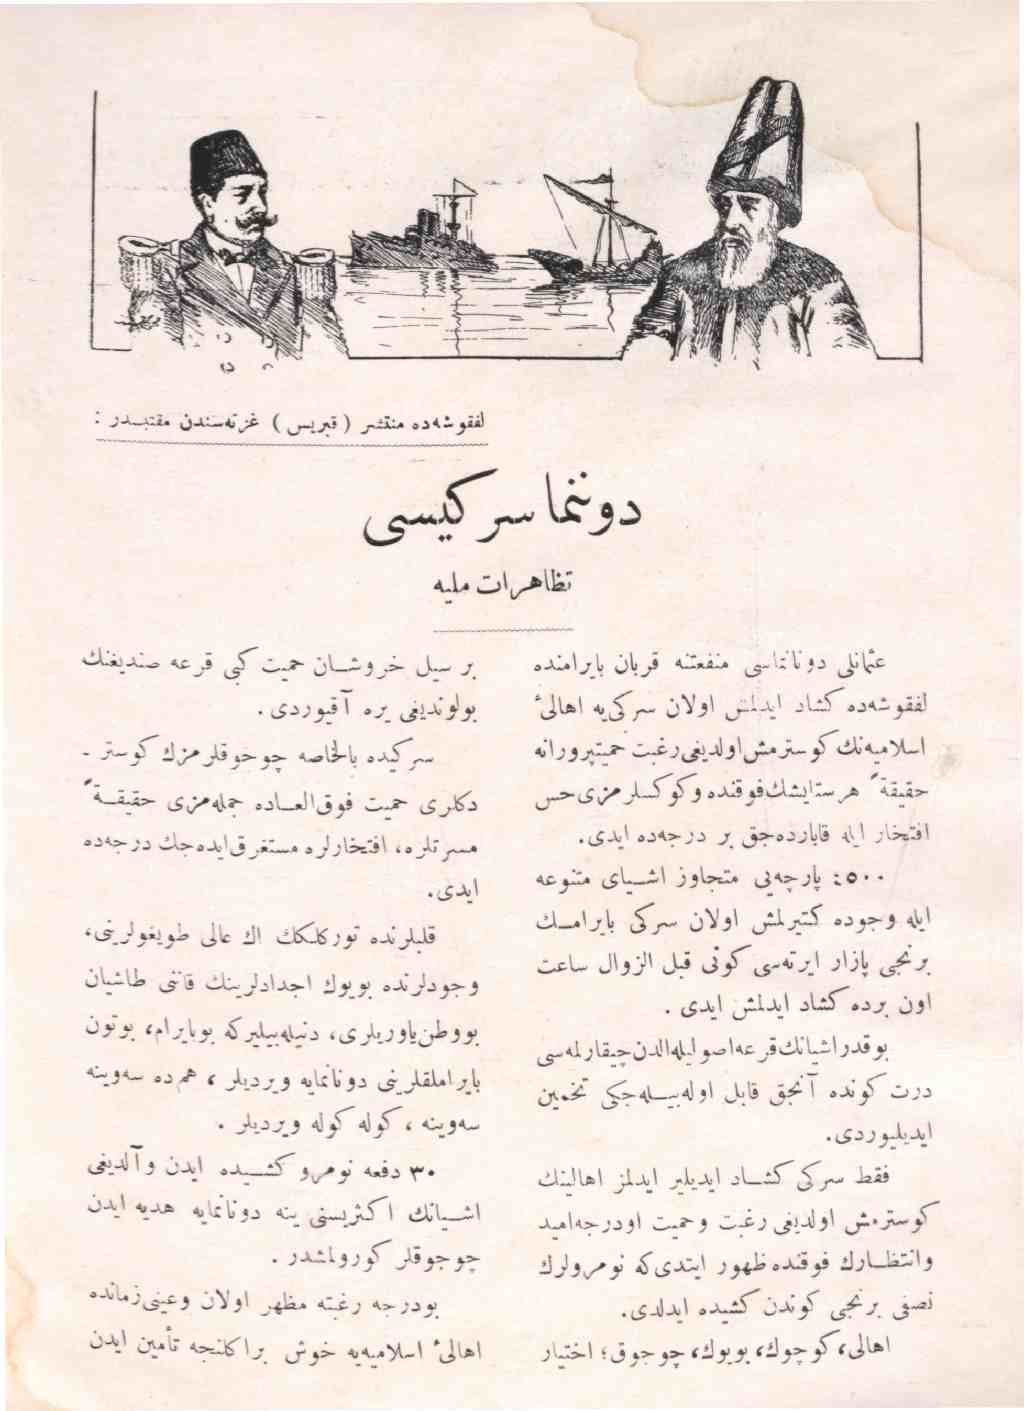 لفقوشه‌ده منتشر ( قبریس ) غزته‌سندن مقتبسدر :
دوننما سرکیسی
تظاهرات ملیه
عثمانلی دونانماسی منفعتنه قربان بایرامنده
لفقوشه‌ده کشاد ایدلمش اولان سرکی‌یه اهالیٔ
اسلامیه‌نك کوسترمش اولدیغی رغبت حمیتپرورانه
حقیقةً هر ستایشك فوقنده وکوکسلرمزی حس
افتخار ایله قابارده‌جق بر درجه‌ده ایدی.
٤٥٠٠ پارچه‌یی متجاوز اشیای متنوعه
ایله وجوده کتیرلمش اولان سرکی بایرامك
برنجی پازار ایرته‌سی کونی قبل الزوال ساعت
اون برده کشاد ایدلمش ایدی .
بوقدر اشیانك قرعه اصولیله الدن چیقارلمه‌سی
درت کونده آنجق قابل اوله‌بیله‌جکی تخمین
ایدیلیوردی.
فقط سرکی کشاد ایدیلیر ایدلمز اهالینك
کوسترمش اولدیغی رغبت وحمیت اودرجه امید
وانتظارك فوقنده ظهور ایتدی‌که نومرولرك
نصفی برنجی کوندن کشیده ایدلدی.
اهالی، کوچوك، بویوك، چوجوق؛ اختیار
بر سیل خروشان حمیت کبی قرعه صندیغنك
بولوندیغی یره آقیوردی .
سرکیده بالخاصه چوجوقلرمزك کوستر -
دکلری حمیت فوق‌العاده جمله‌مزی حقیقةً
مسرتلره، افتخارلره مستغرق ایده‌جك درجه‌ده
ایدی.
قلبلرنده تورکلكك اك عالی طویغولرینی،
وجودلرنده بویوك اجدادلرینك قاننی طاشیان
بووطن یاوریلری، دنیله‌بیلیرکه بوبایرام، بوتون
بایراملقلرینی دونانمایه ویردیلر ، هم‌ده سه‌وینه
سه‌وینه ، کوله کوله ویردیلر .
٣٠ دفعه نومرو کشیده ایدن وآلدیغی
اشیانك اکثریسنی ینه دونانمایه هدیه ایدن
چوجوقلر کورولمشدر .
بودرجه رغبته مظهر اولان وعینی زمانده
اهالیٔ اسلامیه‌یه خوش بر اکلنجه تأمین ایدن